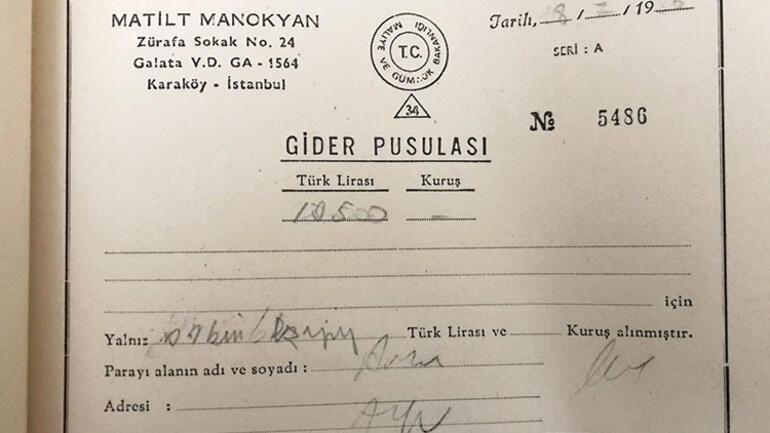 MATİLT MANOKYAN
Zürafa Sokak No. 24
Galata V.D. GA - 1564
Karaköy - İstanbul
MALİYE VE GÜMRÜK BAKANLIĞI
T.C.
34
Tarih, 8 / / 19
SERİ : A
№ 5486
GİDER PUSULASI
Türk Lirası Kuruş
10500 —
için
Yalnız Türk Lirası ve Kuruş alınmıştır.
Parayı alanın adı ve soyadı :
Adresi :